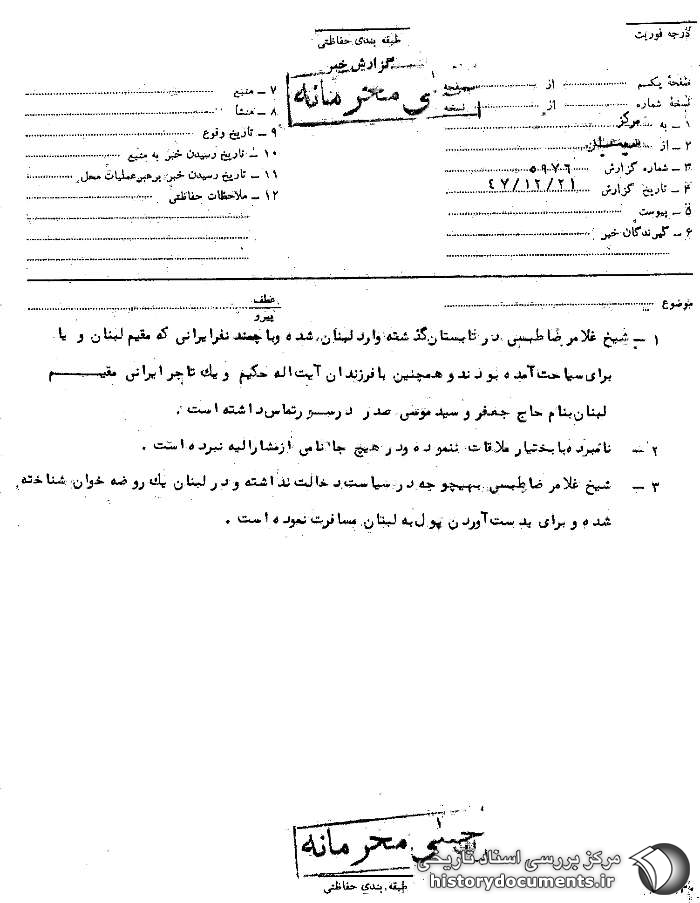 درجه فوریت
طبقه بندی حفاظتی
گزارش خبر
خیلی محرمانه
صفحهٔ یکم از صفحه
نسخهٔ شماره از نسخه
۱ ـ به مرکز
۲ ـ از
۳ ـ شماره گزارش ۵۹۷۶
۴ ـ تاریخ گزارش ۴۷/۱۲/۲۱
۵ ـ پیوست
۶ ـ گیرندگان خبر
۷ ـ منبع
۸ ـ منشأ
۹ ـ تاریخ وقوع
۱۰ ـ تاریخ رسیدن خبر به منبع
۱۱ ـ تاریخ رسیدن خبر برهبر عملیات محل
۱۲ ـ ملاحظات حفاظتی
موضوع
عطف
پیرو
۱ ـ شیخ غلامرضا طبسی در تابستان گذشته وارد لبنان شده و با چند نفر ایرانی که مقیم لبنان و یا
برای سیاحت آمده بودند و همچنین با فرزندان آیت اله حکیم و یک تاجر ایرانی مقیم
لبنان بنام حاج جعفر و سید موسی صدر در سور تماس داشته است .
۲ ـ نامبرده با بختیار ملاقات ننموده و در هیچ جا نامی از مشارالیه نبرده است .
۳ ـ شیخ غلامرضا طبسی بهیچوجه در سیاست دخالت نداشته و در لبنان یک روضه خوان شناخته
شده و برای بدست آوردن پول به لبنان مسافرت نموده است .
خیلی محرمانه
طبقه بندی حفاظتی
مرکز بررسی اسناد تاریخی
historydocuments.ir